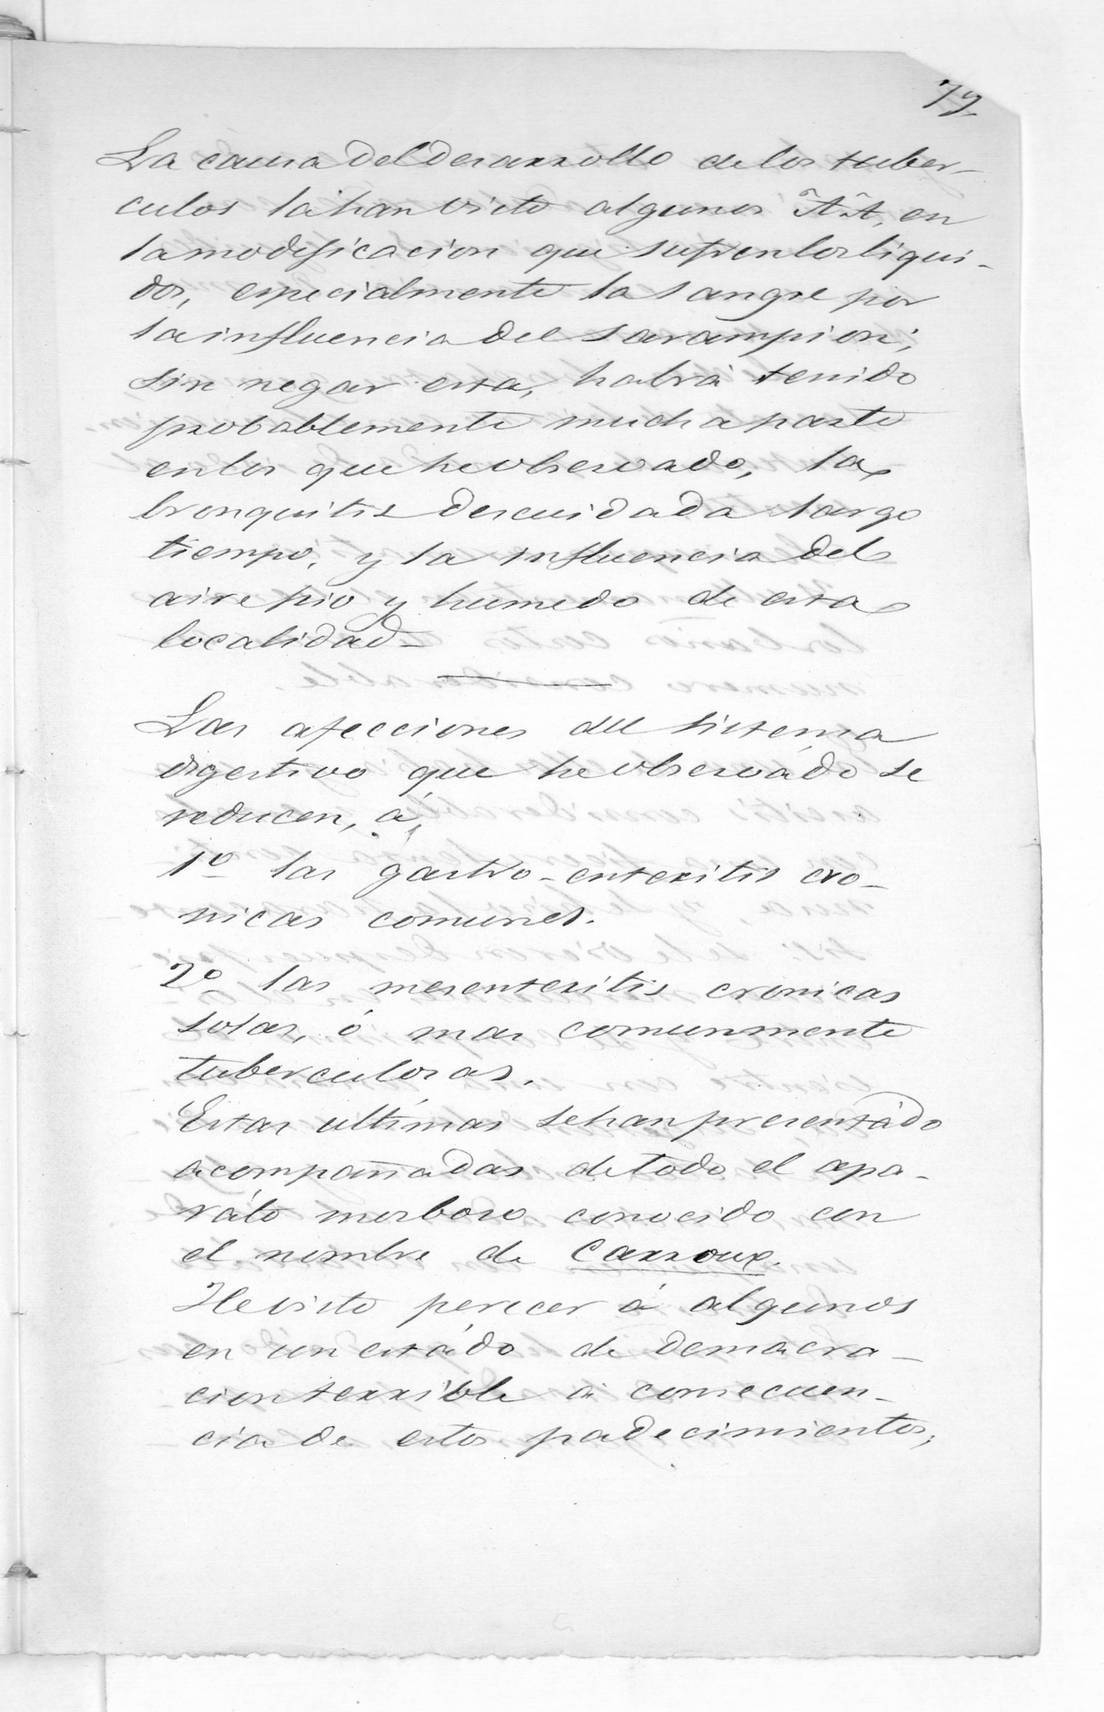 La causa del desarrollo de los tuber-
culos la han visto algunos A.A. en
la modificacion que sufren los liqui-
dos, especialmente la sangre por
la influencia del sarampion;
sin negar esta, habrá tenido
probablemente mucha parte
en los que he observado, la
bronquitis descuidada largo
tiempo, y la influencia del
aire frio y humedo de esta
localidad-
Las afecciones del sistema
digestivo que he observado se
reducen, á,
1º las gastro-enteritis cro-
nicas comunes.
2º las mesenteritis cronicas
solas, ó mas comunmente
tuberculosas.
Estas ultimas se han presentádo
acompañadas de todo el apa-
ráto morboso conocido con
el nombre de Carroux.
He visto perecer á algunos
en un estádo de demacra-
cion terrible á consecuen-
cia de estos padecimientos;